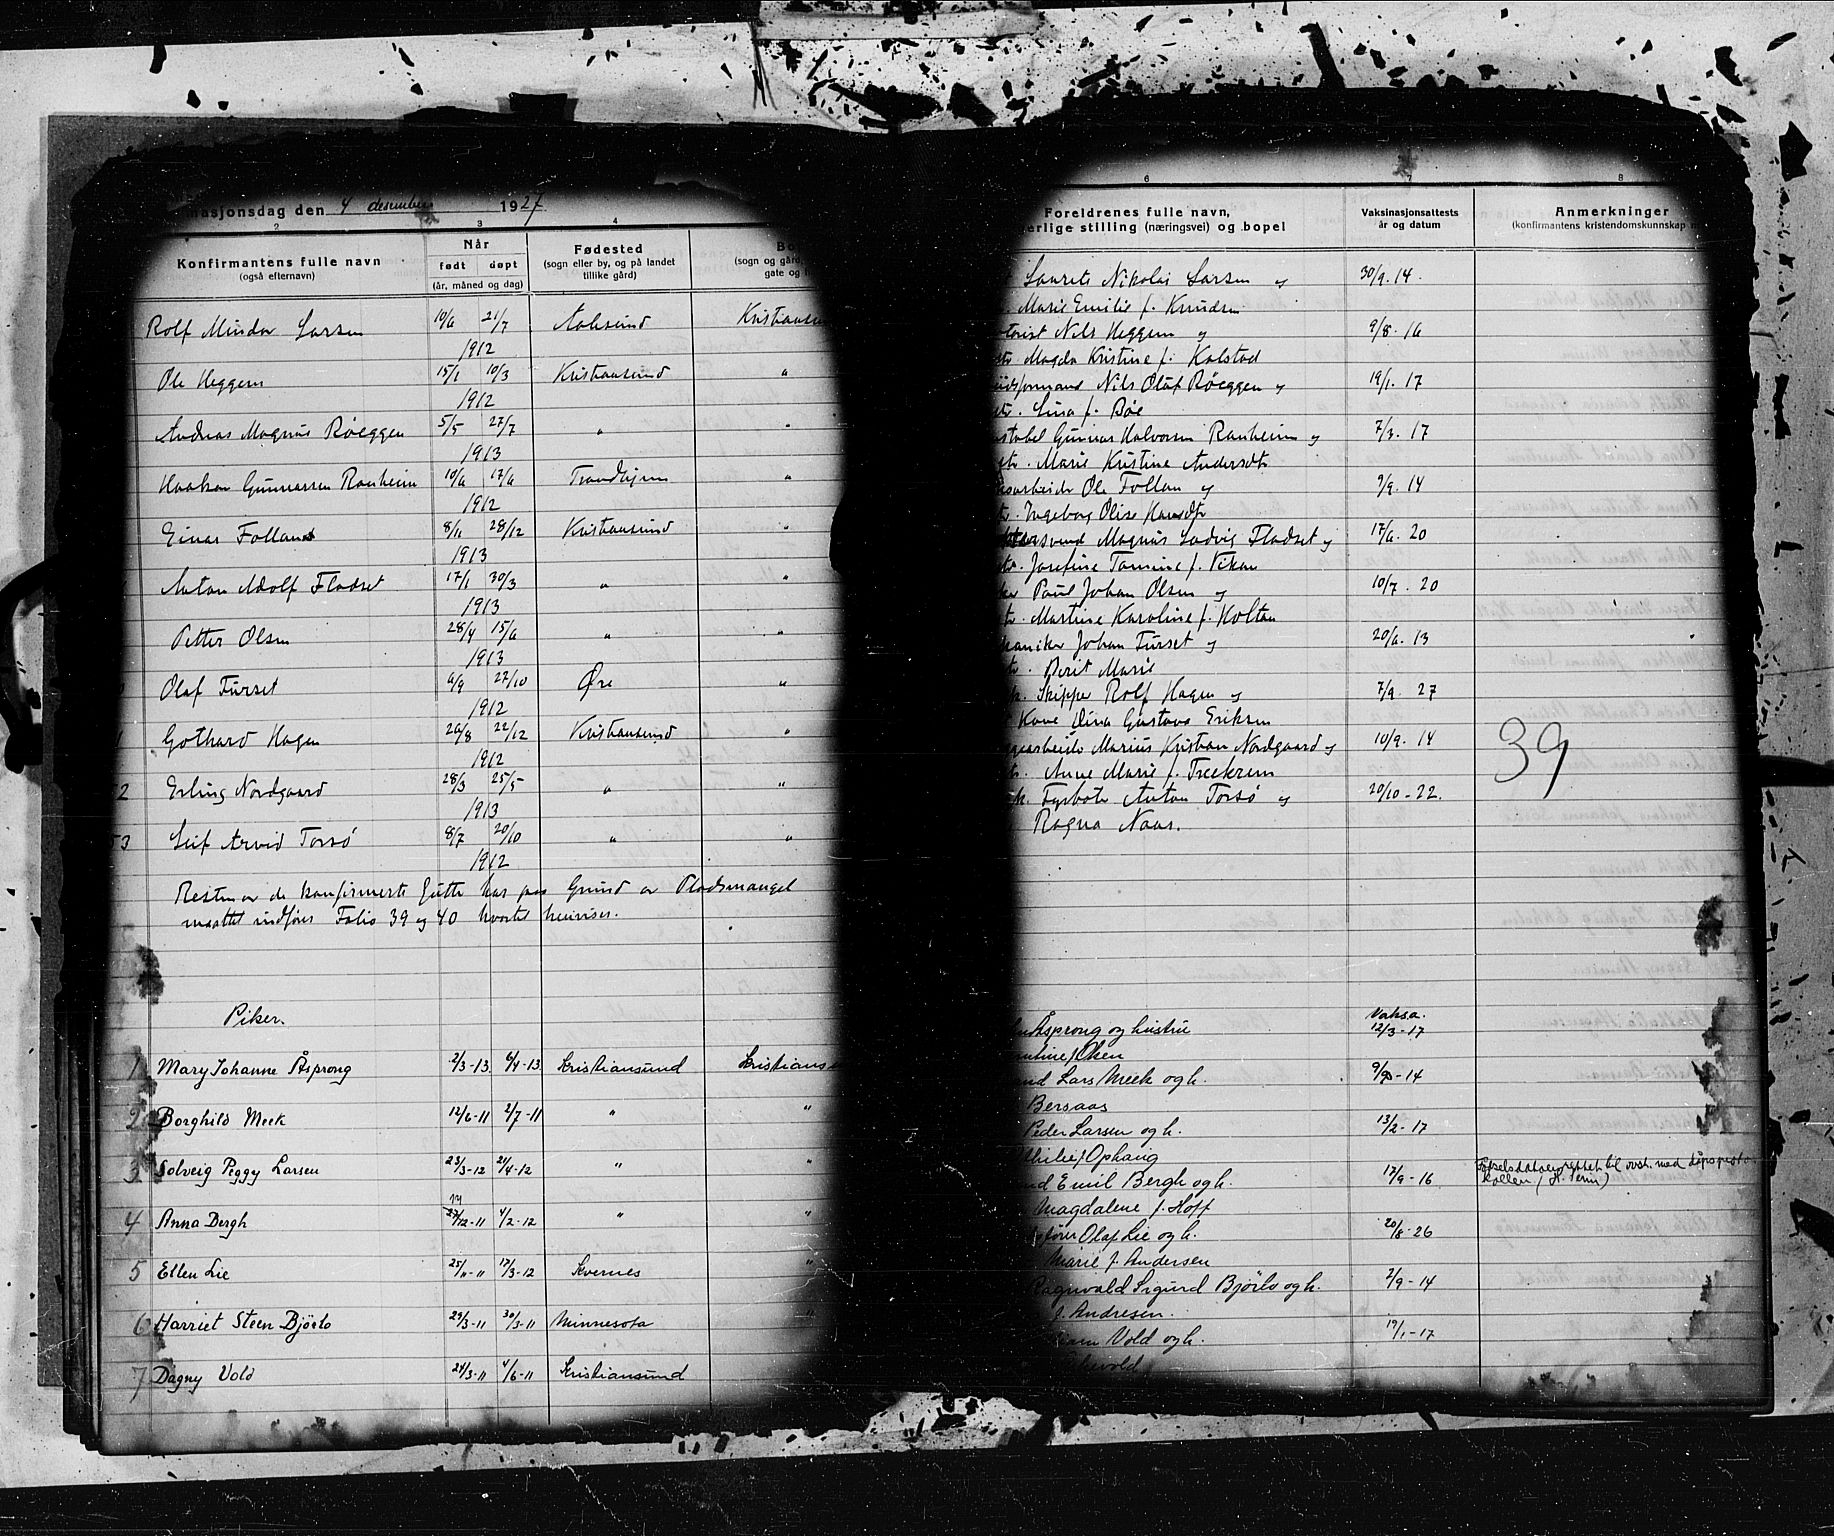 masjonsdag den 4 desember 1927
2 3 4
Konfirmantens fulle navn
(også efternavn)
Når
født døpt
(år, måned og dag)
Fødested
(sogn eller by, og på landet
tillike gård)
Bo
(sogn og gård,
gate og h
Rolf Mindor Larsen 10/6 21/7 Aalesund Kristiansun
1912
Ole Heggem 15/1 10/3 Kristiansund "
1912
Andreas Magnus Røeggen 5/5 27/7 " "
1913
Haakon Gunnarsen Ranheim 10/6 17/6 Trondhjem "
1912
Einar Folland 8/11 28/12 Kristiansund "
1913
Anton Adolf Fladset 17/1 30/3 " "
1913
Petter Olsen 28/4 15/6 " "
1913
Olaf Furset 6/9 27/10 Øre "
1912
Gothard Hagen 26/8 22/12 Kristiansund "
1912
2 Erling Nordgaard 28/3 25/5 " "
1913
53 Leif Arvid Torsø 8/7 20/10 " "
1912
Resten av de konfirmerte Gutter har paa Grund av Pladsmangel
maattet indføres Folio 39 og 40 hvortil henvises.
Piker.
1 Mary Johanne Åsprong 2/3-13 6/4-13 Kristiansund Kristians
2 Borghild Meek 12/6-11 2/7-11 " "
3 Solveig Peggy Larsen 23/3-12 21/4-12 " "
4 Anna Bergh 27/12-11 4/2-12 " "
5 Ellen Lie 25/11-11 17/3-12 Kvernes "
6 Harriet Steen Bjørlo 29/3-11 30/3-11 Minnesota "
7 Dagny Vold 24/3-11 4/6-11 Kristiansund
6 7 8
Foreldrenes fulle navn,
erlige stilling (næringsvei) og bopel
Vaksinasjonsattests
år og datum
Anmerkninger
(konfirmantens kristendomskunnskap m
Laurits Nikolai Larsen og 30/9.14.
Marie Emilie f. Knudsen
Nils Heggem og 9/8.16
Magda Kristine f. Kalstad
Nils Olaf Røeggen og 19/1.17
Lina f. Bøe
Gunnar Halvorsen Ranheim og 7/3.17
Marie Kristine Andersdtr
Ole Follan og 9/9.14
Ingeborg Olise Hansdtr
Magnus Ludvig Fladset og 17/6.20
Josefine Tomine f. Vikan
Paul Johan Olsen og 10/7.20
Martine Karoline f. Holtan
Johan Furset og 20/6.13
Berit Marie
Skipper Rolf Hagen og 7/9.27
Kone Dina Gustava Eriksen
Marius Kristian Nordgaard og 10/9.14
Anne Marie f. Treekrem
39
Fyrbøter Anton Torsø og 20/10-22.
Ragna Naas.
Åsprong og hustru Vaksa. 12/3-17
Olsen
Lars Meek og h. 9/9-14
Bersaas
Peder Larsen og h. 13/2-17
Ophaug
Emil Bergh og h. 12/9-16 Fødselsdato rettet til ovst. med dåpsproto-
kollen
Magdalene f. Hoff
Olaf Lie og h. 20/8-26
Marie f. Andersen
Ragnvald Sigurd Bjørlo og h. 2/9-14
f. Andresen.
Vold og h. 19/1-17